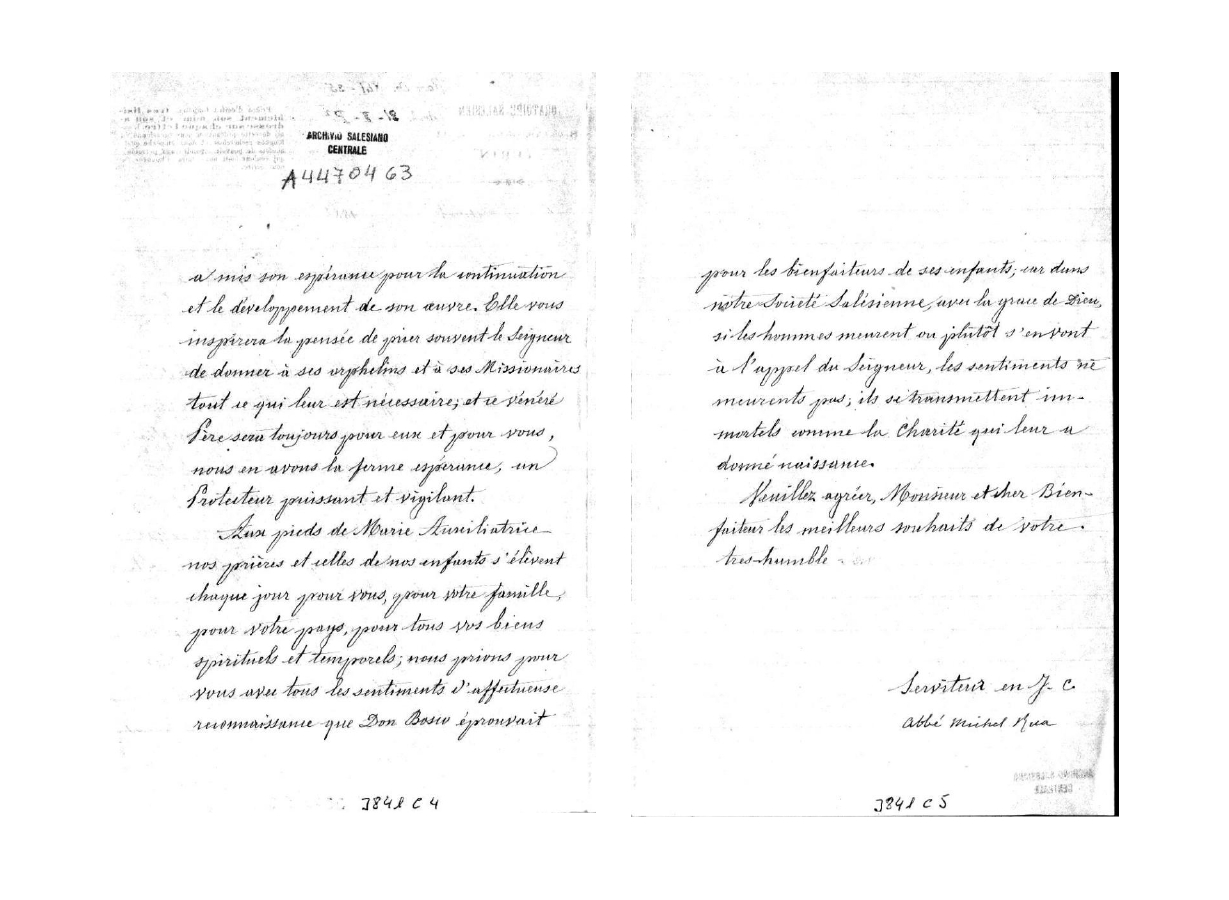 ARCHIVIO SALESIANO
CENTRALE
A4470463
a mis son espérance pour la continuation
et le développement de son œuvre. Elle vous
inspirera la pensée de prier souvent le Seigneur
de donner à ses orphelins et à ses Missionaires
tout ce qui leur est nécessaire; et ce vénéré
Père sera toujours pour eux et pour vous,
nous en avons la ferme espérance, un
Protecteur puissant et vigilant.
Aux pieds de Marie Auxiliatrice
nos prières et celles de nos enfants s'élèvent
chaque jour pour vous, pour votre famille,
pour votre pays, pour tous vos biens
spirituels et temporels; nous prions pour
vous avec tous les sentiments d'affectueuse
reconnaissance que Don Bosco éprouvait
3841 C 4
pour les bienfaiteurs de ses enfants; car dans
nôtre Societé Salésienne, avec la grace de Dieu,
si les hommes meurent ou plutôt s'en vont
à l'appel du Seigneur, les sentiments ne
meurents pas; ils se transmettent im-
mortels comme la Charité qui leur a
donné naissance.
Veuillez agréer, Monsieur et cher Bien-
faiteur les meilleurs souhaits de votre
tres-humble
Serviteur en J. C.
Abbé Michel Rua
3841 C 5